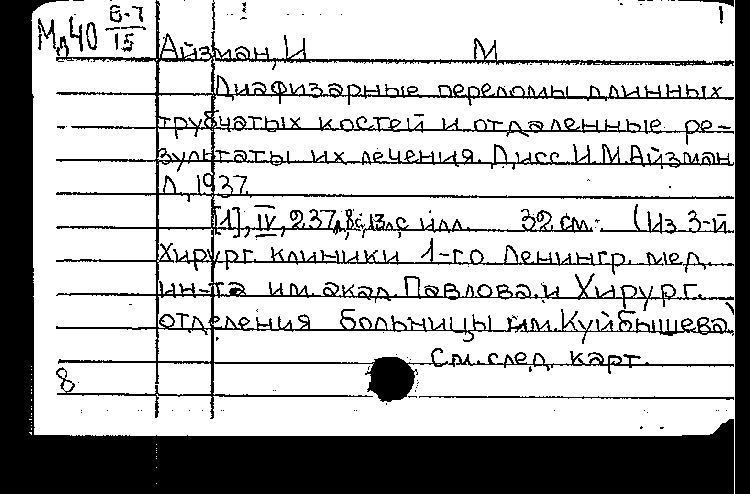 Мд40 В-7/15
Айзман, И М
Диафизарные переломы длинных
трубчатых костей и отдаленные ре-
зультаты их лечения. Дисс. И.М.Айзман
Л., 1937.
[1], IV, 237л, 8с, 13л, с илл. 32 см. (Из 3-й
Хирург. клиники 1-го Ленингр. мед.
ин-та им. акад. Павлова и Хирург.
отделения больницы им. Куйбышева)
См. след. карт.
8